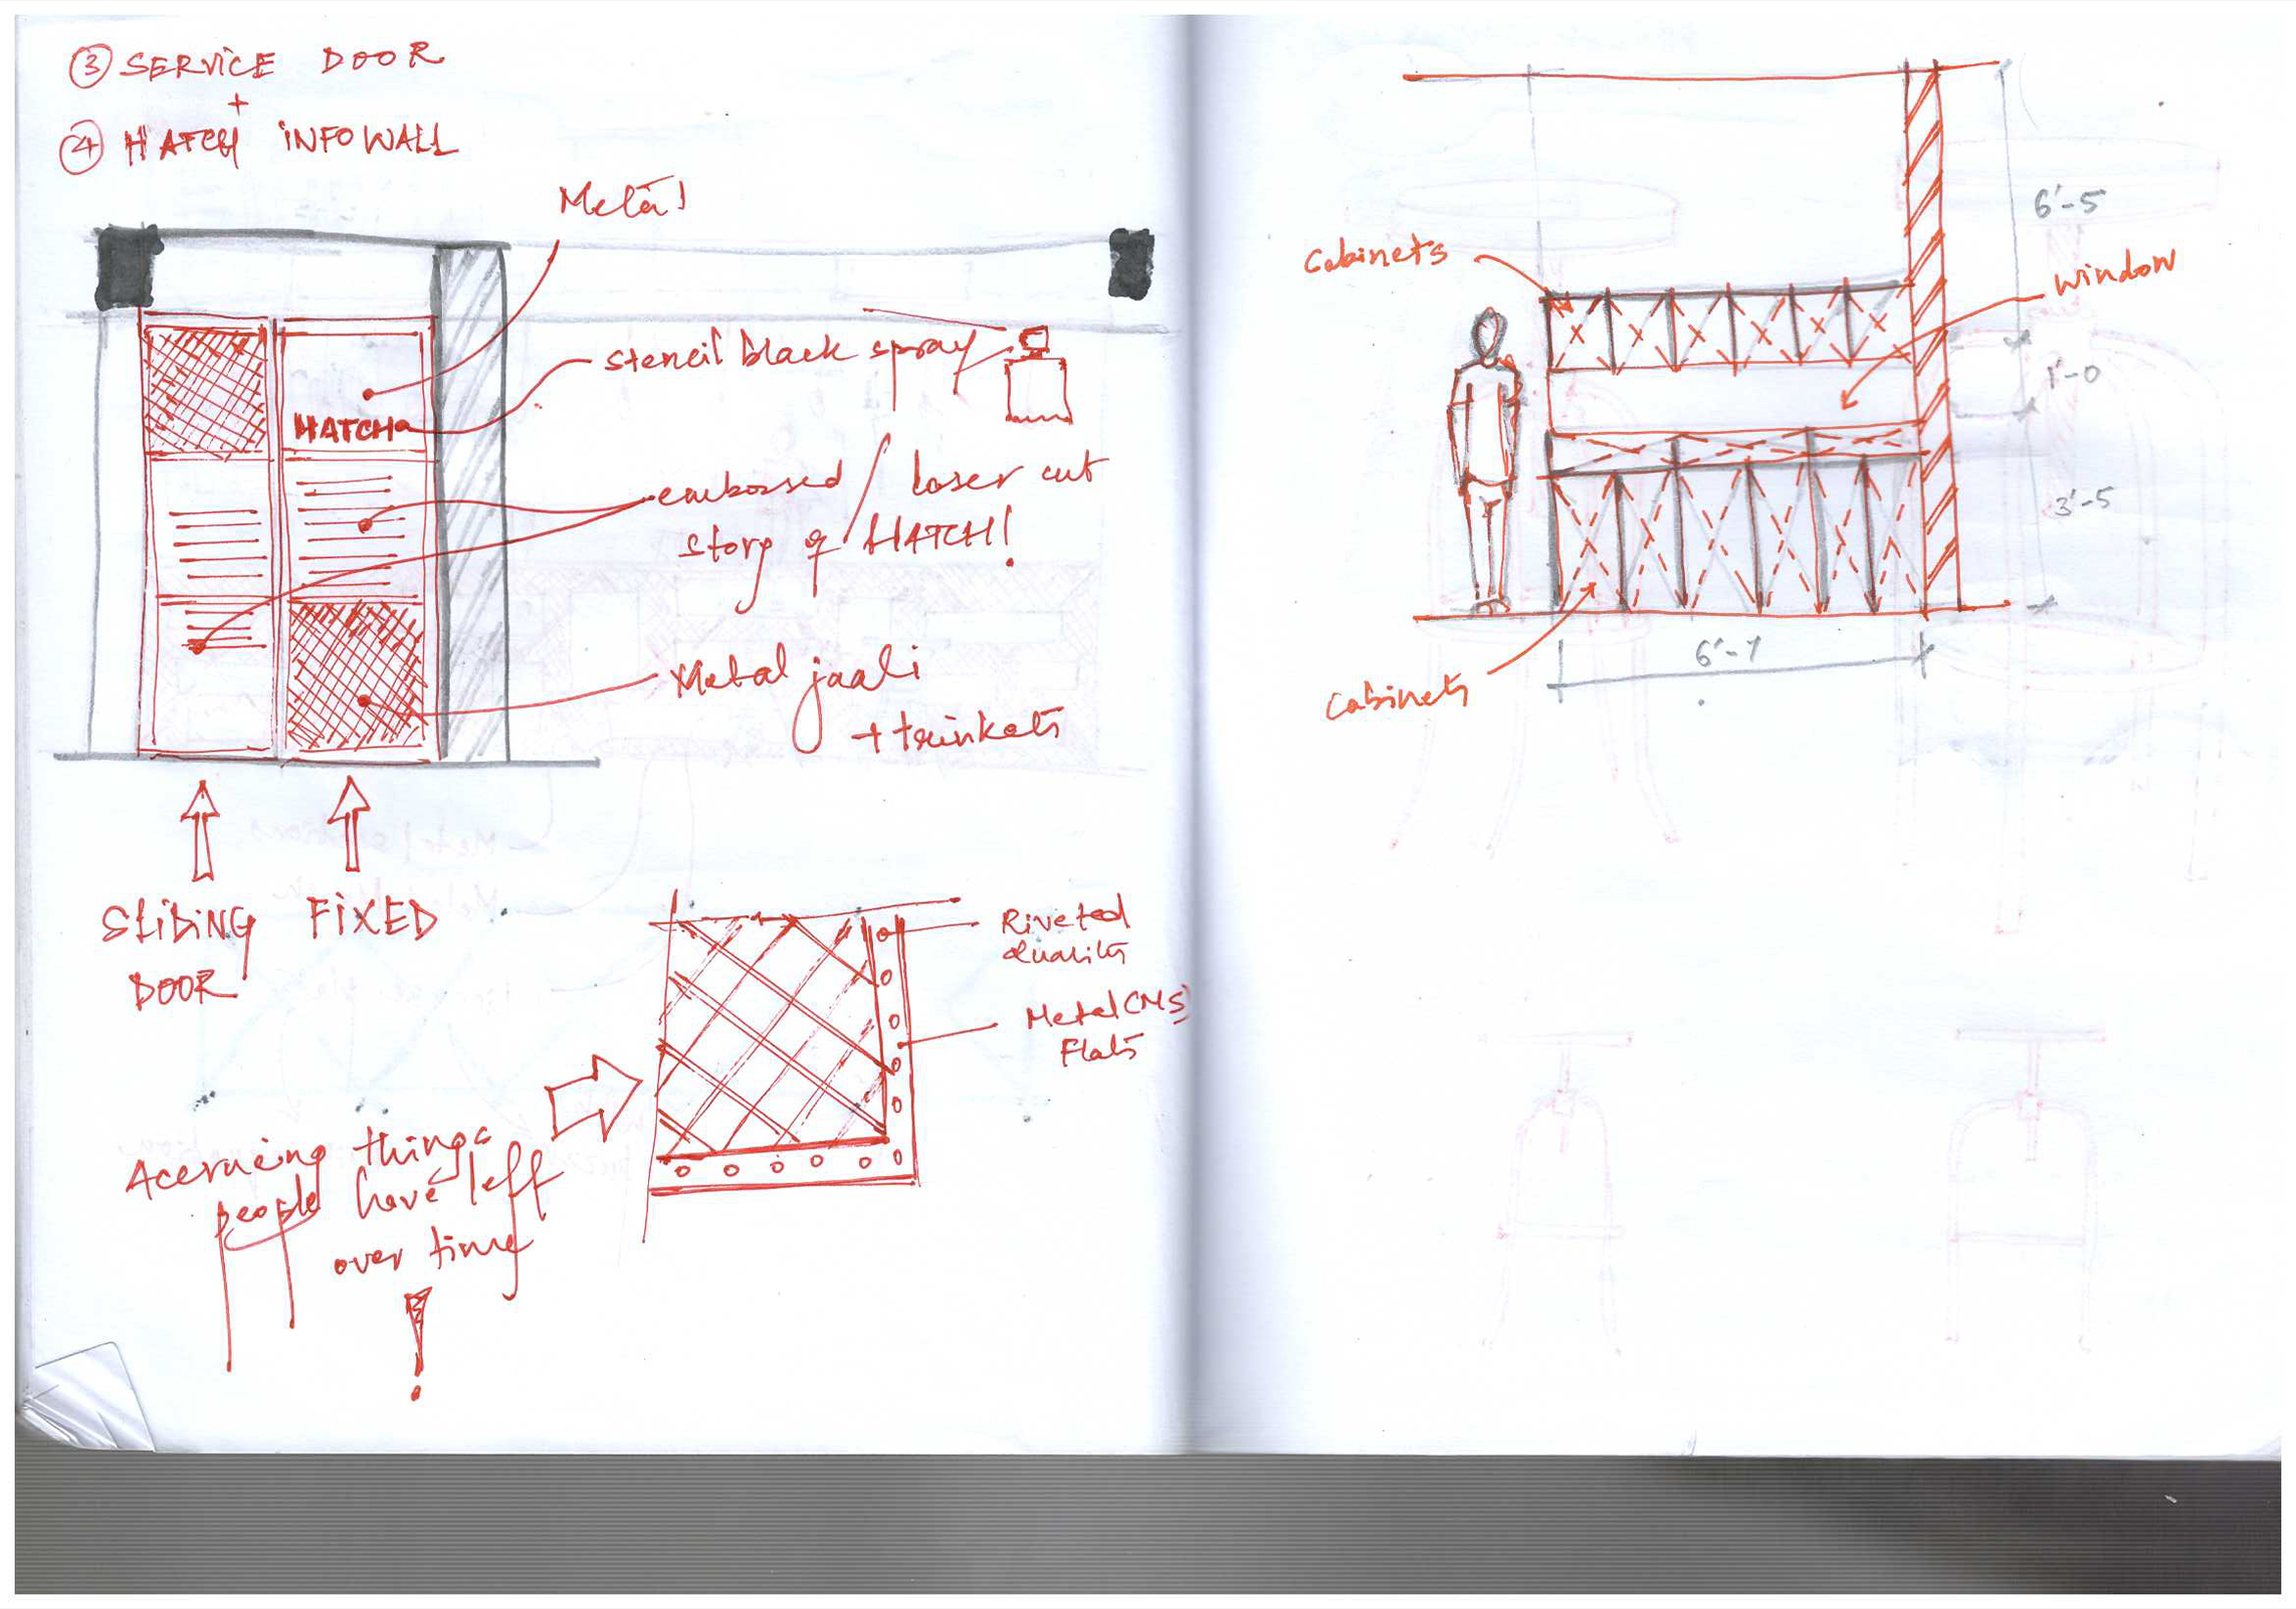 ③ SERVICE DOOR
+
④ HATCH INFOWALL
Metal
stencil black spray
HATCH
embossed / laser cut
story of HATCH!
Metal jaali
+ trinkets
SLIDING FIXED
DOOR
Riveted
Quality
Metal (MS)
Flats
Accrueing things
people have left
over time
!
6'-5
Cabinets
window
1'-0
3'-5
6'-7
Cabinets